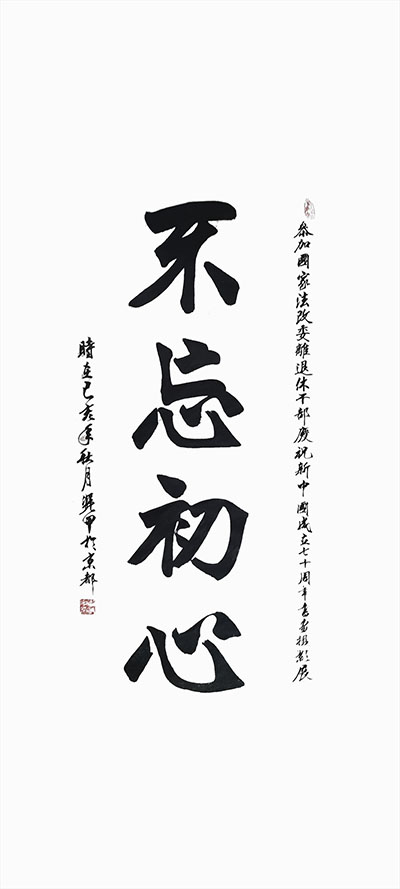 參加國家法改委離退休干部慶祝新中國成立七十周年書畫攝影展
不忘初心
時在己亥年秋月甲於京都